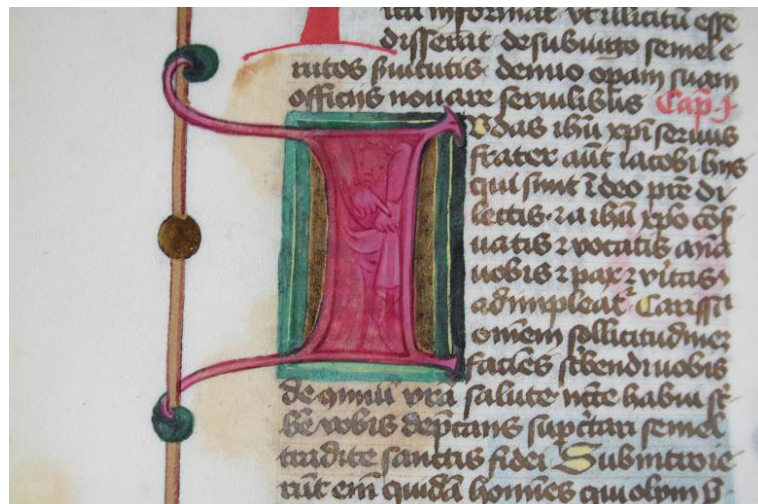 ita informat vt illicitū esse
disserat de subiugo semel e
rutos ſuitutis denuo opam suam
officijs nouare seruilibus Cap. j
I vdas ihū xp̄i seruus
frater aūt iacobi hijs
qui sunt ī deo prē di
lectis ⁊ a ihū xp̄o cōs
uatis ⁊ vocatis
uobis ⁊ pax ⁊
adimpleat Carissi
omēm sollicitudinē
facies sc̄bendi uobis
de vrā salute ncc̄e habui sc̄
be vobis dep̄cans sup̄ctari semel
tradite sanctis fidei Subintroie
rūt eīm quidā homīes qui